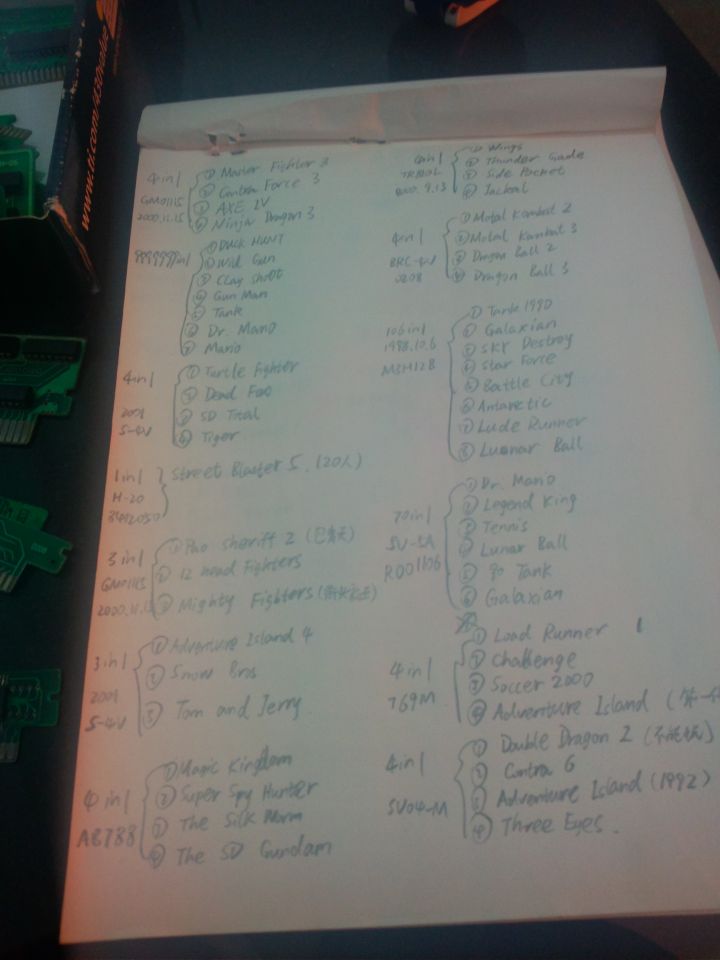 www.ti.com/4430value
4 in 1
GM01115
2000.11.15
① Master Fighter 3
② Contra Force 3
③ AXE IV
④ Ninja Dragon 3
9999999in1
① DUCK HUNT
② Wild Gun
③ Clay Shoot
④ Gun Man
⑤ Tank
⑥ Dr. Mario
⑦ Mario
4in1
2001
S-4V
① Turtle Fighter
② Dead Fao
③ SD Total
④ Tiger
1in1
H-20
Street Blaster 5. (20人)
3in1
GM01115
① Pao Sheriff 2 (包青天)
② 12 head Fighters
③ Mighty Fighters
3in1
2001
S-4V
① Adventure Island 4
② Snow Bros
③ Tom and Jerry
4in1
AB788
① Magic Kingdom
② Super Spy Hunter
③ The Silk Worm
④ The SD Gundam
2000.9.13
① Wings
② Thunder Gade
③ Side Pocket
④ Jackal
4in1
BRC-4V
0208
① Motal Kombat 2
② Motal Kombat 3
③ Dragon Ball 2
④ Dragon Ball 3
106in1
1998.10.6
M3M128
① Tank 1990
② Galaxian
③ SKY Destroy
④ Star Force
⑤ Battle City
⑥ Antarctic
⑦ Lude Runner
⑧ Lunnar Ball
70in1
SV-5A
R001106
① Dr. Mario
② Legend King
③ Tennis
④ Lunar Ball
⑤ 90 Tank
⑥ Galaxian
4in1
769M
① Load Runner 1
② Challenge
③ Soccer 2000
④ Adventure Island
4in1
SV04-M
① Double Dragon 2
② Contra 6
③ Adventure Island (1992)
④ Three Eyes.